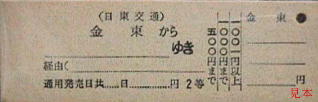 (日東交通)
金東から
ゆき
経由(
通用発売日共 日 円 2等
五〇〇円まで
一〇〇〇円まで
一〇〇〇円以上
金東
円
見本